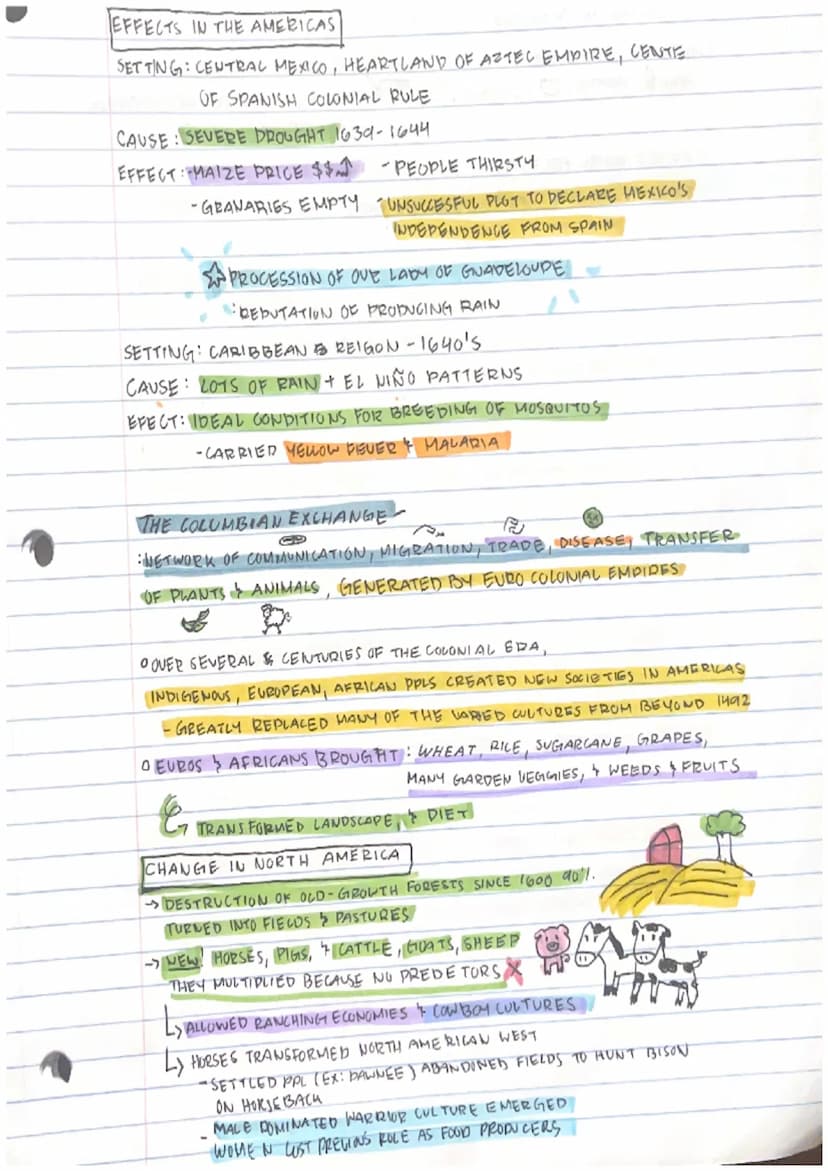 EFFECTS IN THE AMERICAS
SETTING: CENTRAL MEXICO, HEARTLAND OF AZTEC EMPIRE, CENTE
OF SPANISH COLONIAL RULE
CAUSE: SEVERE DROUGHT 1639-1644
EFFECT: -MAIZE PRICE $$↑ - PEOPLE THIRSTY
- GRANARIES EMPTY - UNSUCCESSFUL PLOT TO DECLARE MEXICO'S
INDEPENDENCE FROM SPAIN
☆ PROCESSION OF OUR LADY OF GUADELOUPE
: REPUTATION OF PRODUCING RAIN
SETTING: CARIBBEAN REIGON - 1640'S
CAUSE: LOTS OF RAIN + EL NIÑO PATTERNS
EFECT: IDEAL CONDITIONS FOR BREEDING OF MOSQUITOS
- CARRIED YELLOW FEVER & MALARIA
THE COLUMBIAN EXCHANGE
: NETWORK OF COMMUNICATION, MIGRATION, TRADE, DISEASE, TRANSFER
OF PLANTS & ANIMALS, GENERATED BY EURO COLONIAL EMPIRES
o OVER SEVERAL CENTURIES OF THE COLONIAL ERA,
INDIGENOUS, EUROPEAN, AFRICAN PPLS CREATED NEW SOCIETIES IN AMERICAS
- GREATLY REPLACED MANY OF THE VARIED CULTURES FROM BEYOND 1492
o EUROS & AFRICANS BROUGHT : WHEAT, RICE, SUGARCANE, GRAPES,
MANY GARDEN VEGGIES, & WEEDS & FRUITS
→ TRANSFORMED LANDSCAPE, & DIET
CHANGE IN NORTH AMERICA
→ DESTRUCTION OF OLD-GROWTH FORESTS SINCE 1600 90%.
TURNED INTO FIELDS & PASTURES
→ NEW! HORSES, PIGS, & CATTLE, GOATS, SHEEP
THEY MULTIPLIED BECAUSE NO PREDETORS X
↳ ALLOWED RANCHING ECONOMIES & COWBOY CULTURES
↳ HORSES TRANSFORMED NORTH AMERICAN WEST
- SETTLED PPL (EX: PAWNEE) ABANDONED FIELDS TO HUNT BISON
ON HORSEBACK
- MALE DOMINATED WARRIOR CULTURE EMERGED
- WOMEN LOST PREVIOUS ROLE AS FOOD PRODUCERS